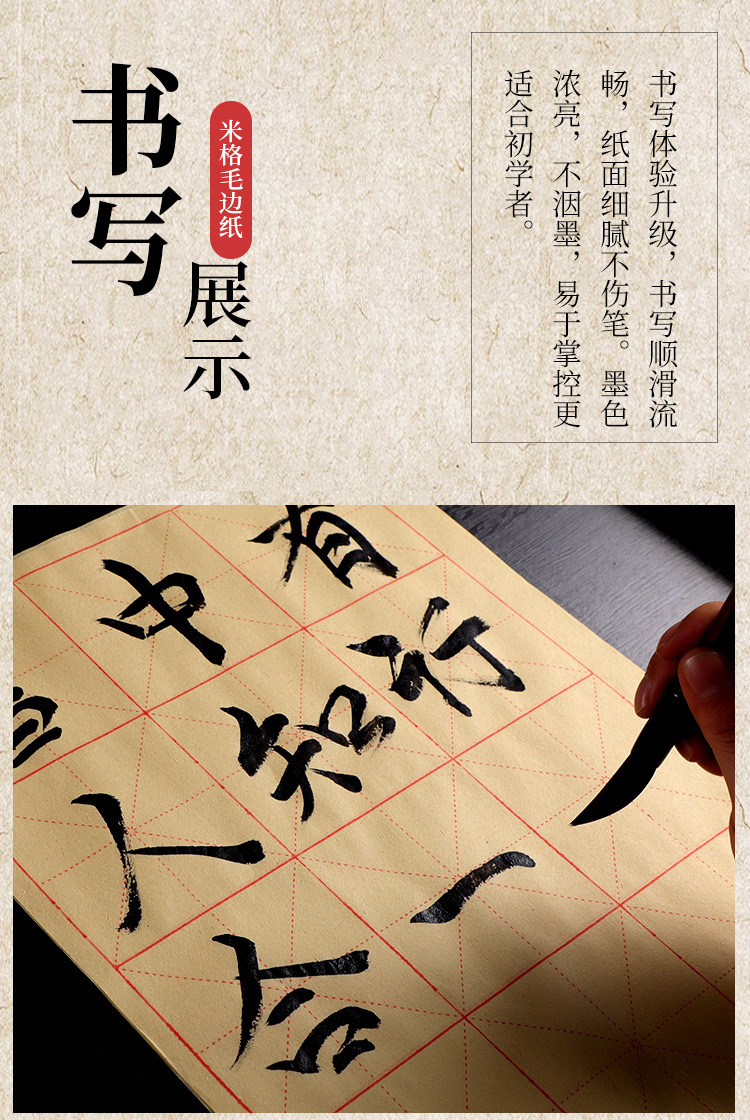 书写
米格毛边纸
展示
书写体验升级，书写顺滑流
畅，纸面细腻不伤笔。墨色
浓亮，不洇墨，易于掌控更
适合初学者。
中有
人知行
合一